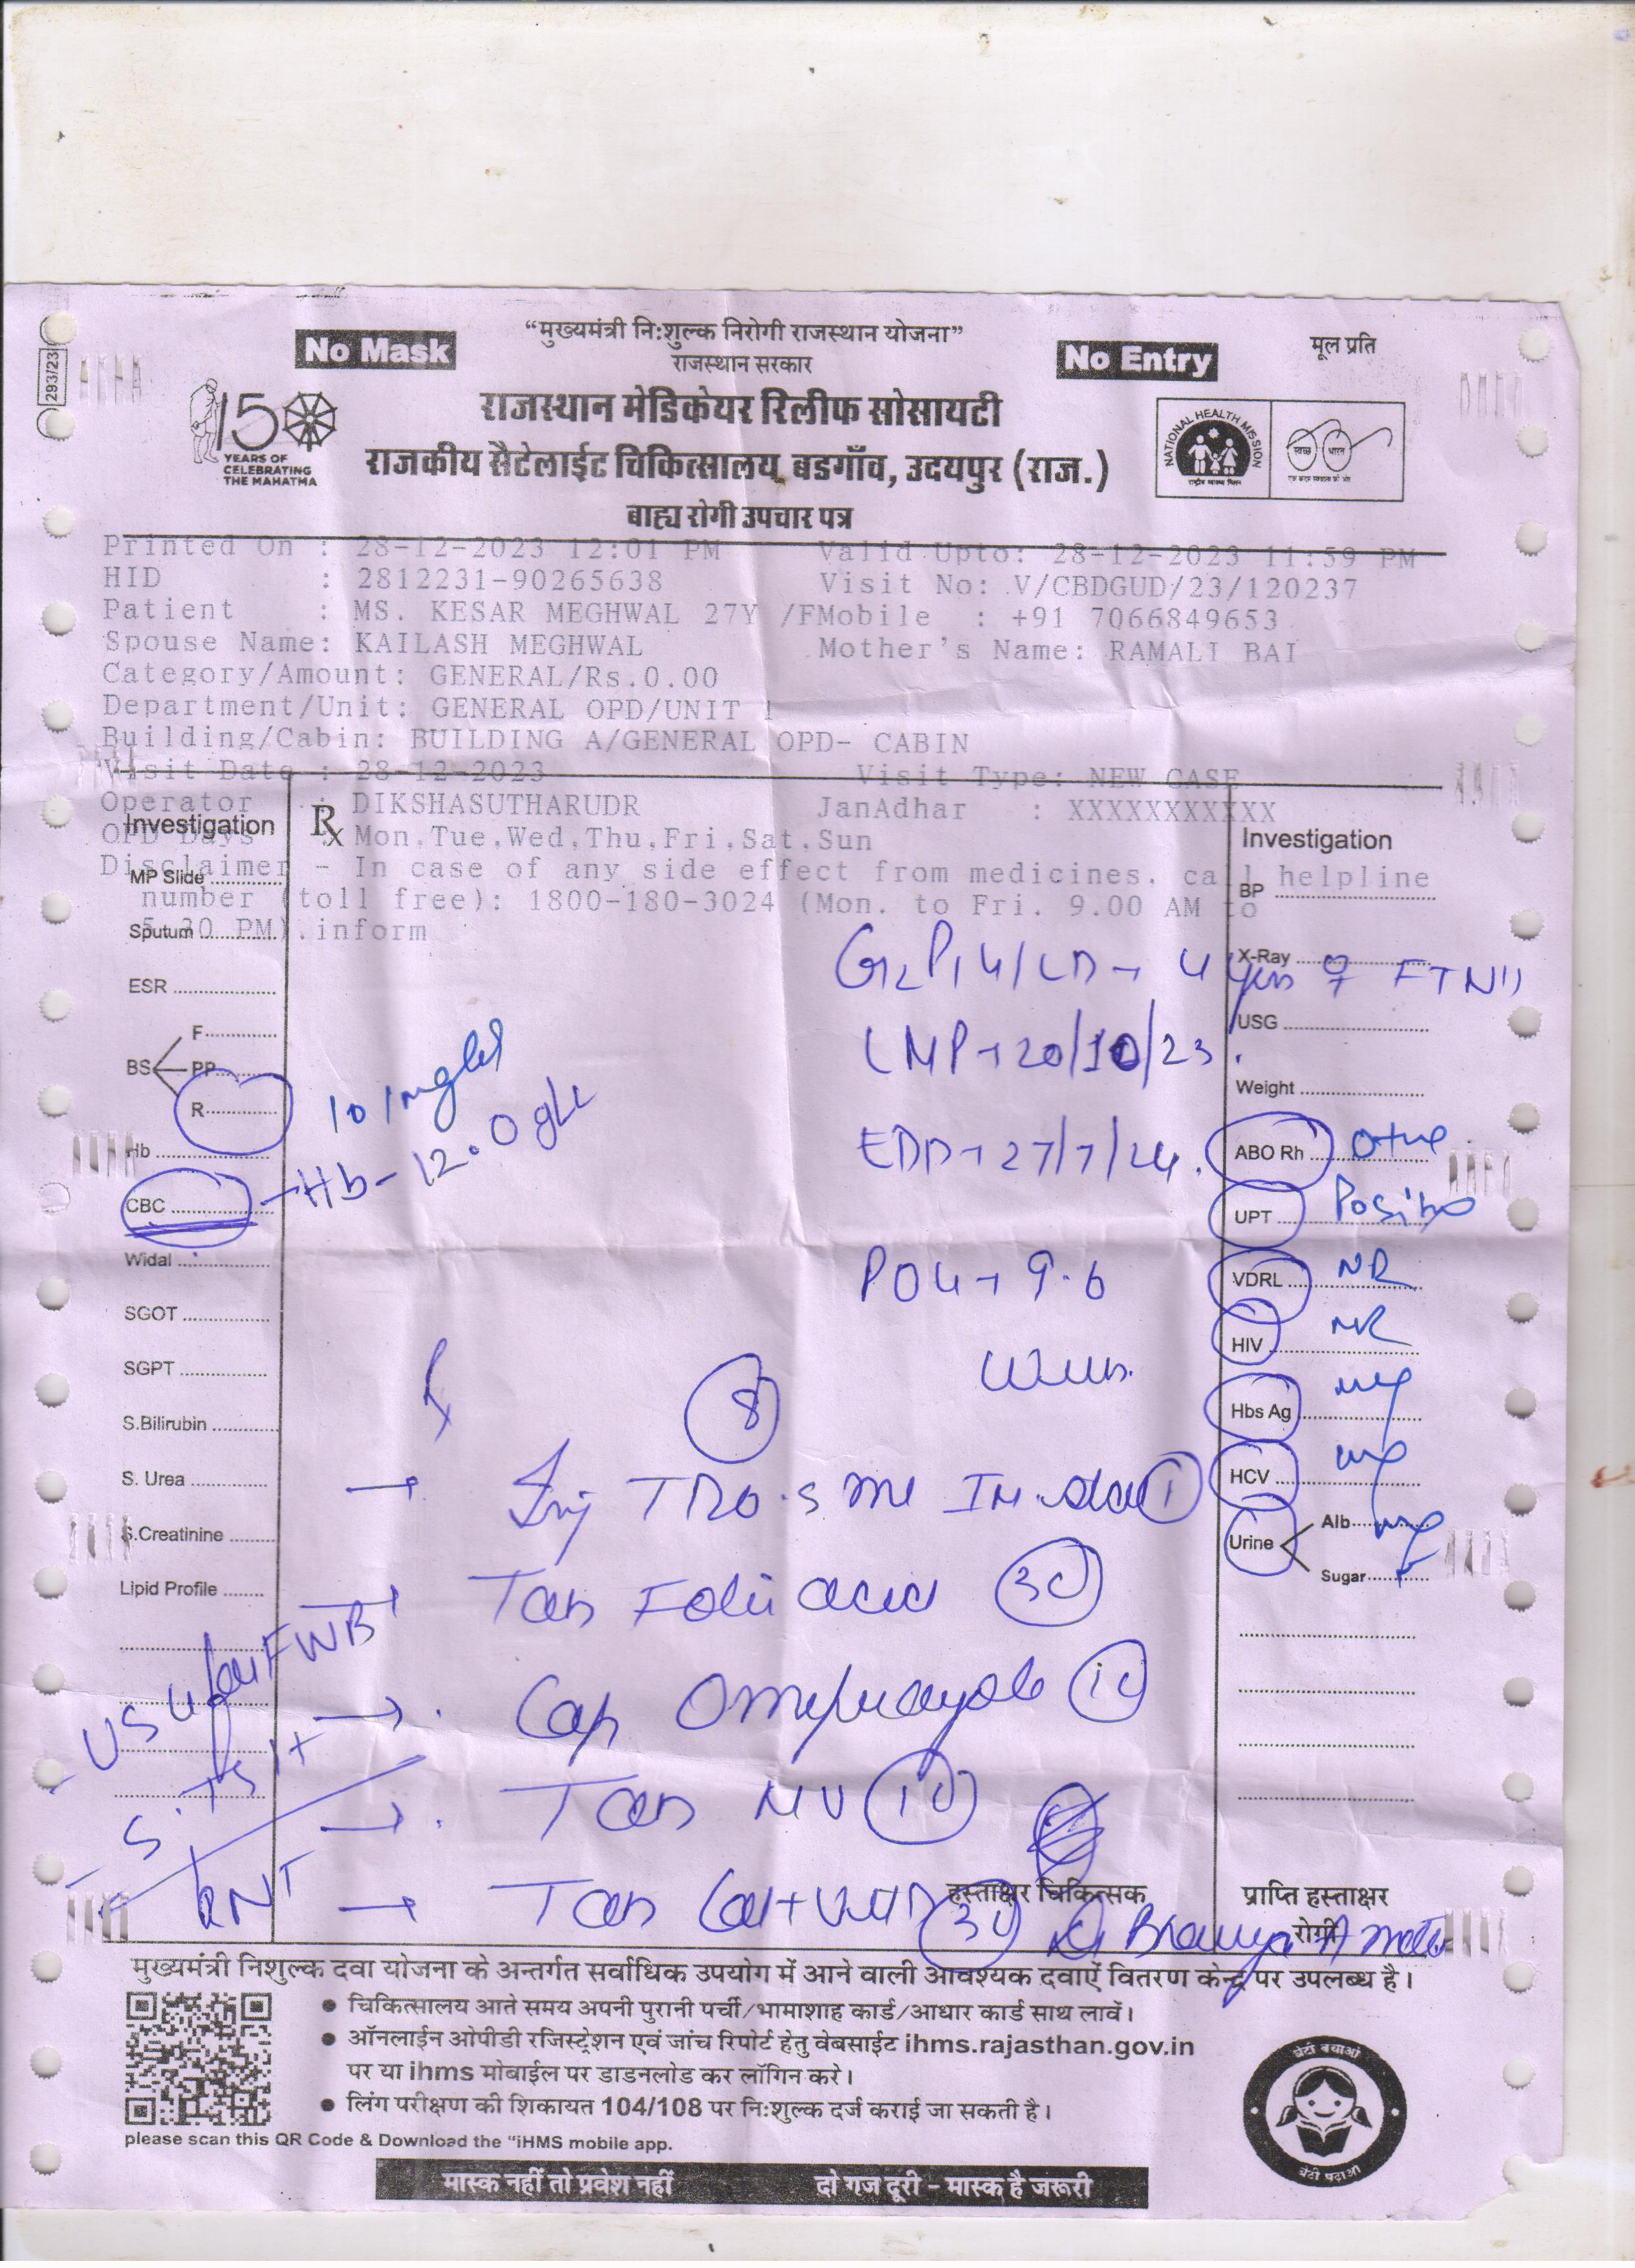 293/23
No Mask
"मुख्यमंत्री नि:शुल्क निरोगी राजस्थान योजना"
No Entry
मूल प्रति
राजस्थान सरकार
राजस्थान मेडिकेयर रिलीफ सोसायटी
150
YEARS OF
CELEBRATING
THE MAHATMA
राजकीय सैटेलाईट चिकित्सालय, बडगाँव, उदयपुर (राज.)
NATIONAL HEALTH MISSION
राष्ट्रीय स्वास्थ्य मिशन
स्वच्छ भारत
एक कदम स्वच्छता की ओर
बाह्य रोगी उपचार पत्र
Printed On : 28-12-2023 12:01 PM Valid Upto: 28-12-2023 11:59 PM
HID : 2812231-90265638 Visit No: V/CBDGUD/23/120237
Patient : MS. KESAR MEGHWAL 27Y /FMobile : +91 7066849653
Spouse Name: KAILASH MEGHWAL Mother's Name: RAMALI BAI
Category/Amount: GENERAL/Rs.0.00
Department/Unit: GENERAL OPD/UNIT 1
Building/Cabin: BUILDING A/GENERAL OPD- CABIN
Visit Date : 28-12-2023 Visit Type: NEW CASE
Operator : DIKSHASUTHARUDR JanAadhar : XXXXXXXXXXX
OPD Days : Mon,Tue,Wed,Thu,Fri,Sat,Sun
Disclaimer - In case of any side effect from medicines, call helpline
number (toll free): 1800-180-3024 (Mon. to Fri. 9.00 AM to
5.30 PM).inform
Investigation
Rx
Investigation
MP Slide
Sputum
ESR
BS F
PP
R 101 mg/dl
Hb
CBC - Hb - 12.0 g/L
Widal
SGOT
SGPT
S.Bilirubin
S. Urea
S.Creatinine
Lipid Profile
G2P1L1/LD → 4 yrs FTND
LMP → 20/10/23.
EDD → 27/7/24.
POG → 9.6
BP
X-Ray
USG
Weight
ABO Rh O+ve
UPT Positive
VDRL NR
HIV NR
Hbs Ag neg
HCV neg
Urine Alb neg
Sugar
8
→ Inj TT 0.5 ml IM stat 1
→ Tab Folic acid 30
→ Cap Omeprazole 10
→ Tab MV 10
→ Tab Cal + Vit D 30
USG FWB
S. TSH
RNT
हस्ताक्षर चिकित्सक
प्राप्ति हस्ताक्षर
रोगी
मुख्यमंत्री निशुल्क दवा योजना के अन्तर्गत सर्वाधिक उपयोग में आने वाली आवश्यक दवाऐं वितरण केन्द्र पर उपलब्ध है।
● चिकित्सालय आते समय अपनी पुरानी पर्ची/भामाशाह कार्ड/आधार कार्ड साथ लावें।
● ऑनलाईन ओपीडी रजिस्ट्रेशन एवं जांच रिपोर्ट हेतु वेबसाईट ihms.rajasthan.gov.in
पर या ihms मोबाईल पर डाडनलोड कर लॉगिन करे।
● लिंग परीक्षण की शिकायत 104/108 पर नि:शुल्क दर्ज कराई जा सकती है।
please scan this QR Code & Download the "iHMS mobile app.
बेटी बचाओ
बेटी पढ़ाओ
मास्क नहीं तो प्रवेश नहीं दो गज दूरी - मास्क है जरूरी